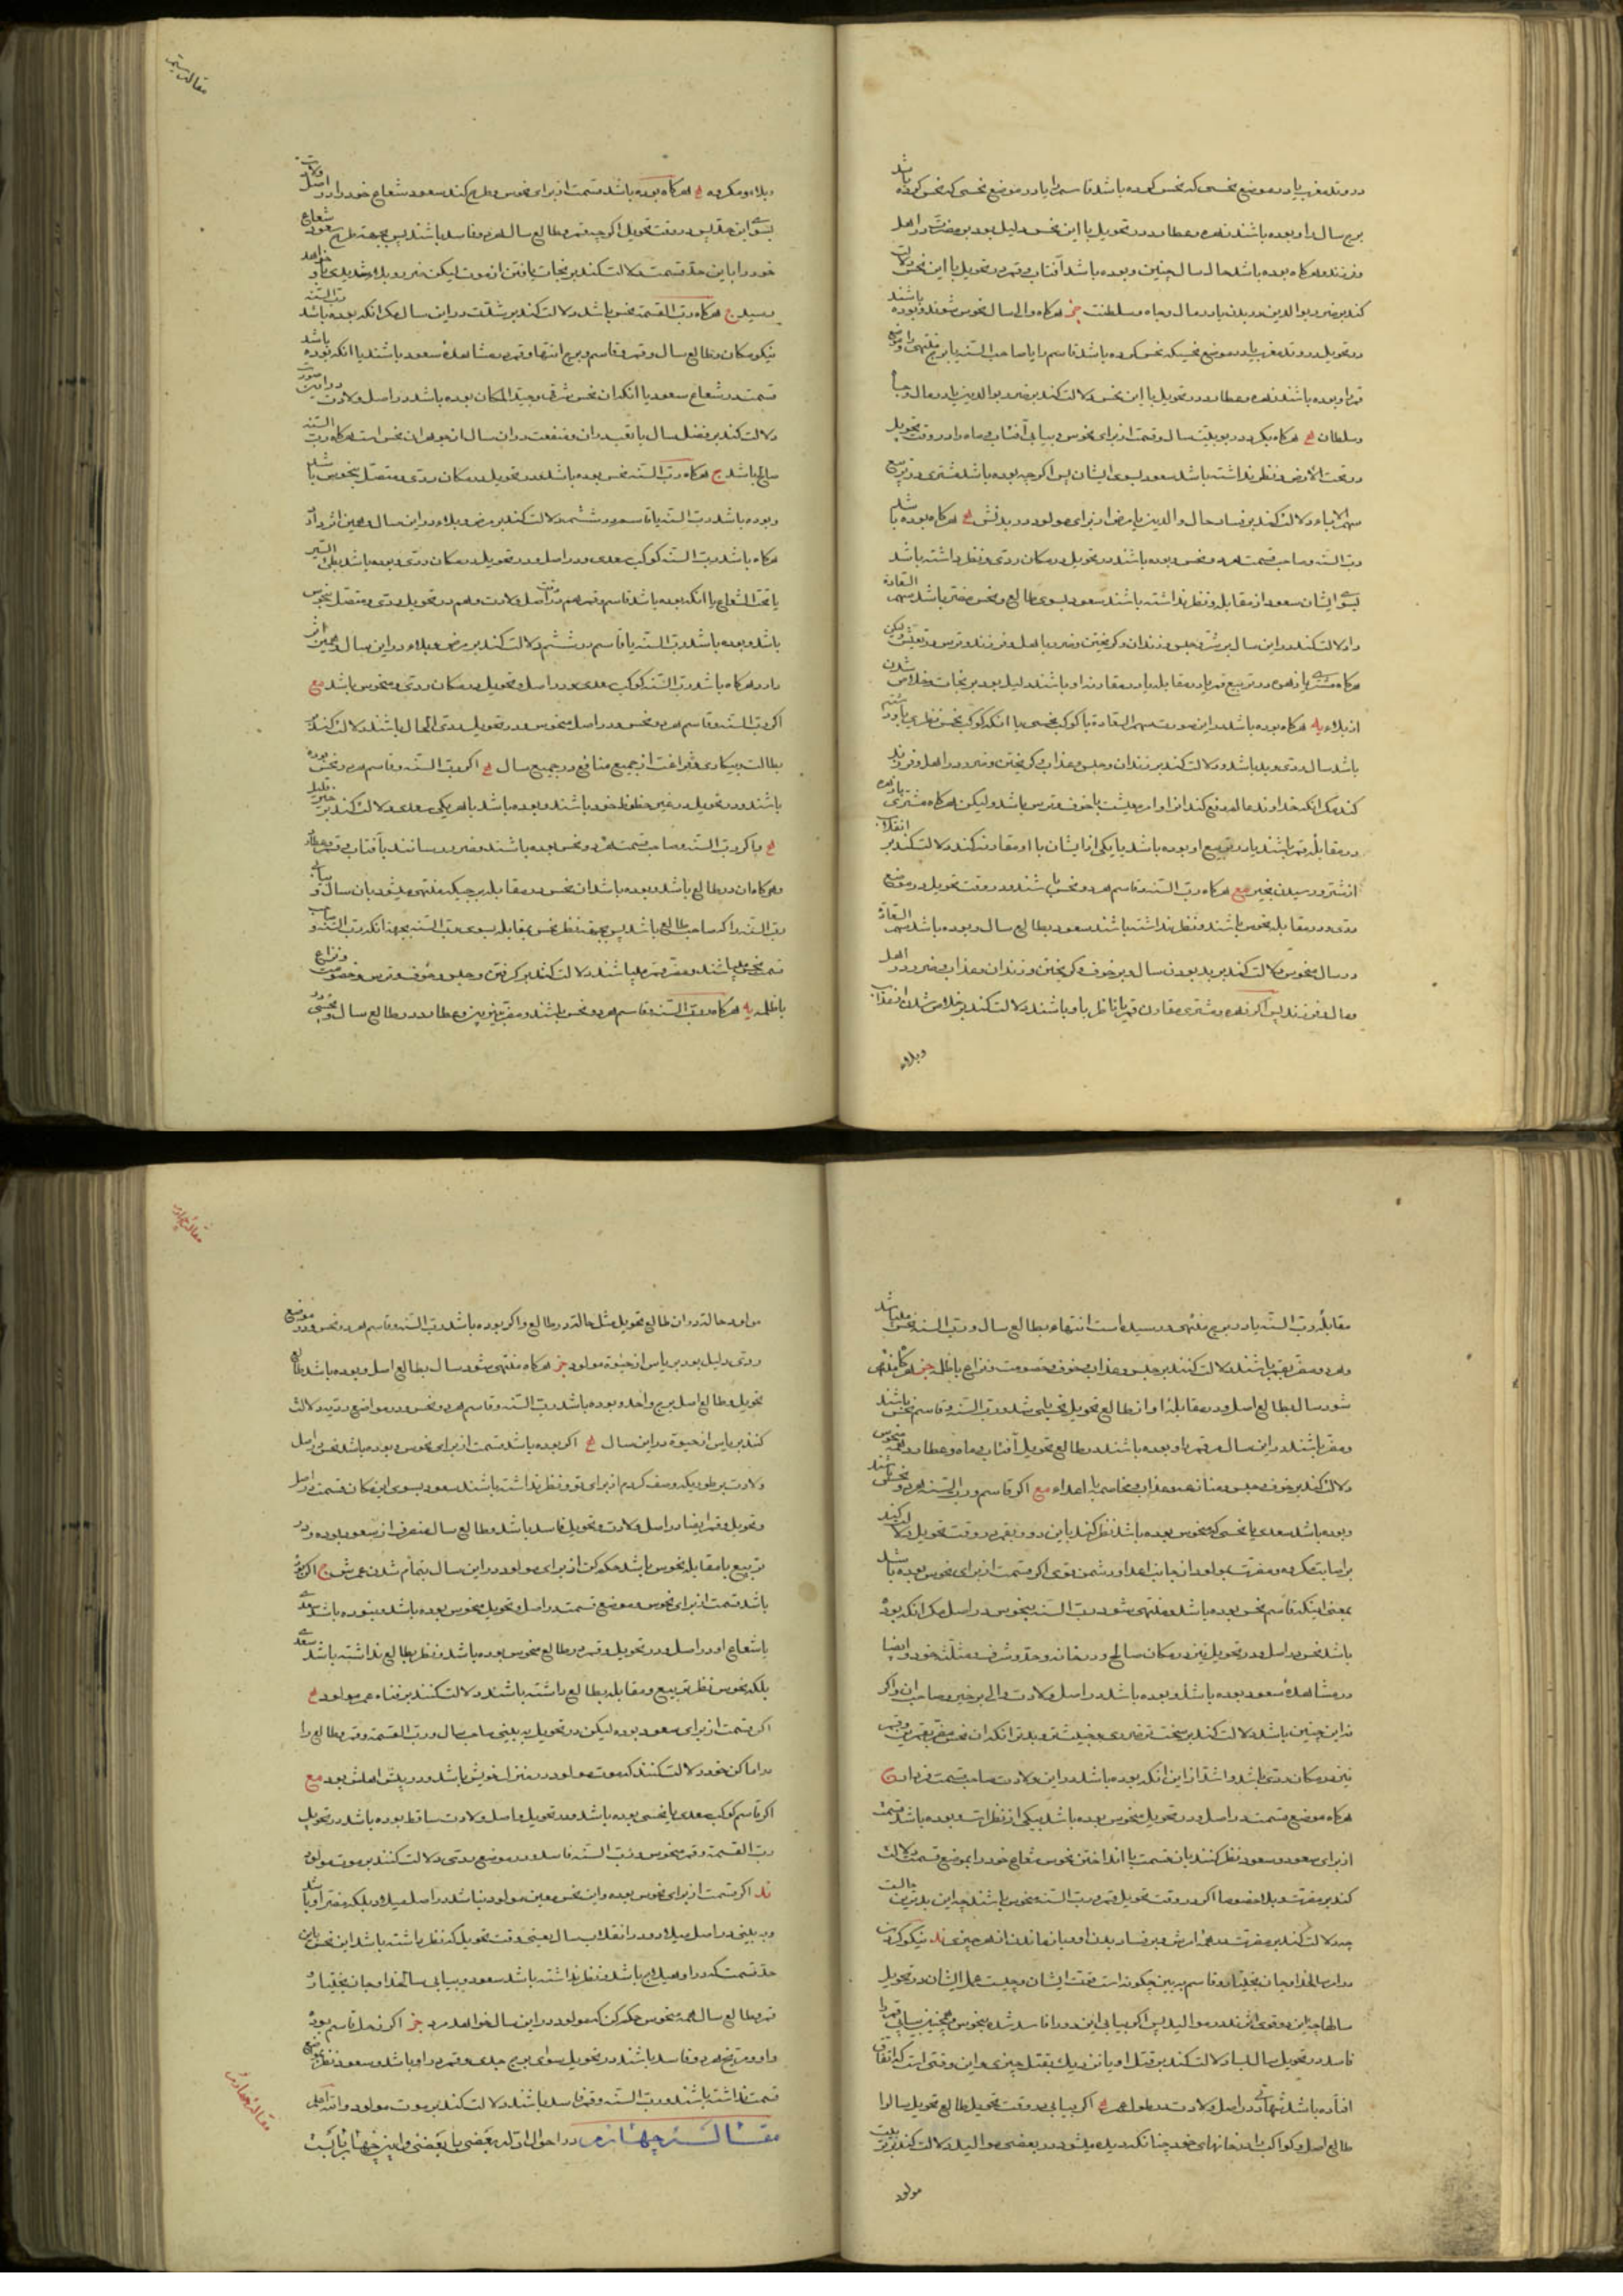 در وتد مغرب یا در موضع نحسی که نحس کرده باشد قاسم را یا در موضع نحسی که نحس کرده باشد
برج سال را و بوده باشند زهره و عطارد در تحویل با این نحس دلیل بود بر مضرت در اهل
و فرزند و هرکاه بوده باشد حال سال چنین و بوده باشد آفتاب و قمر در تحویل با این نحس دلالت
کند بر ضرر بوالدین و در بدن یا در مال و جاه و سلطنت هرکاه والی سال نحوس شوند و بوده باشند
در تحویل در وتد مغرب یا در موضع نحسیکه نحس کرده باشد قاسم را یا صاحب السنه یا برج منتهی را
قمر را و بوده باشند زهره و عطارد در تحویل با این نحس دلالت کند بر ضرر بوالدین یا در مال و جاه
و سلطان هرکاه یکی در بیوتیت سال و قسمت از برای نحوس و بیابی آفتاب و ماه را در وقت تحویل
در تحت الارض و نظر نداشته باشد سعود بسوی ایشان پس اکر چه بوده باشد مشتری در تربیع
سهم الاباء دلالت کند بر فساد حال والدین یا مرض از برای مولود در بدنش هرکاه بوده باشد
رب السنه و صاحب قسمت هر دو نحس و بوده باشند در تحویل در مکان ردی و نظر داشته باشد
بسوی ایشان سعود از مقابله و نظر نداشته باشند سعود بسوی طالع و نحس مضر باشد سهم السعادة
را دلالت کند در این سال بر شر و حبس و زندان و کریختن و ضرر با اهل و فرزند و ترس در تعیش لیکن
هرکاه مشتری یا زهره در تربیع قمر یا در مقابله یا در مقارنه او باشند دلیل بود بر نجات و خلاص شدن
از بلاء یه هرکاه بوده باشد در این صورت سهم السعادة با کوکب نحسی یا آنکه کوکب نحس
باشد سال ردی و بد باشد و دلالت کند بر زندان و حبس و عذاب و کریختن و ضرر در اهل و فرزند
کند مکر آنکه خداوند عالم دفع کند از او امر معیشت با خوف و ترس باشد و لیکن هرکاه مشتری یا زهره
در مقابله قمر باشند یا در تربیع او بوده باشد یا یکی از ایشان با او مقارنه کند دلالت کند بر انقلاب
از شر و رسیدن بخیر مع هرکاه رب السنه و قاسم هر دو نحس باشند و در وقت تحویل در موضع
ردی و در مقابله نحوس باشند و نظر نداشته باشند سعود بطالع سال و بوده باشد سهم السعادة
در سال منحوس دلالت کند بر بد بودن سال و بر خوف و کریختن و زندان و عذاب و ضرر در اهل
و مال و فرزند پس اکر زهره و مشتری مقارن قمر یا ناظر باو باشند دلالت کند بر خلاص شدن از عذاب
وبلاء
مقالت سیم
وبلاء و مکروه هرکاه بوده باشد قسمت از برای نحوس و طرح کند سعود شعاع خود را در اصل ولادت
بسوی این حد پس در وقت تحویل اکر چه قمر و طالع سال هر دو فاسد باشند پس بجهة طرح سعود شعاع
خود را باین حد قسمت دلالت کند بر نجات یافتن از موت لیکن ضرر و بلاء شدیدی باو خواهد
رسید ج هرکاه رب القسمة نحس باشد دلالت کند بر شدت در این سال مکر آنکه بوده باشد رب السنه
نیکو مکان و طالع سال و قمر و قاسم و برج انتها و قمر در مشاهده سعود باشند یا آنکه بوده باشد
قسمت در شعاع سعود یا آنکه آن نحس مشرقی و جید المکان بوده باشد در اصل ولادت در این صورت
دلالت کند بر فضل سال با تعب در آن و منفعت در آن سال از جوهر آن نحس است هرکاه رب السنه
صالح باشد ج هرکاه رب السنه نحس بوده باشد در تحویل در مکان ردی و متصل بنحوس باشد
و بوده باشد رب السنه با قاسم در ششم دلالت کند بر مرض و بلاء در این سال و همین اثر دارد
هرکاه باشد رب السنه کوکب سعدی و در اصل و در تحویل در مکان ردی و بوده باشد بطئ السیر
یا تحت الشعاع یا آنکه بوده باشد قاسم و قمر هم در اصل ولادت و هم در تحویل ردی و متصل بنحوس
باشد و بوده باشد رب السنه یا قاسم در ششم دلالت کند بر مرض و بلاء در این سال و همین اثر
دارد هرکاه باشد رب السنه کوکب سعدی و در اصل و تحویل در مکان ردی و منحوس باشد مع
اکر رب السنه و قاسم هر دو نحس و در اصل منحوس و در تحویل ردی الحال باشند دلالت کند بر
بطالت و بیکاری و فراغت از جمیع منافع در جمیع سال اکر رب السنه و قاسم هر دو نحس بوده
باشند و در تحویل در غیر حظوظ خود باشند و بوده باشد با هر یکی سعدی دلالت کند بر خیر قلیل
و اکر رب السنه و صاحب قسمت هر دو نحس بوده باشند و ضرر رسانند بآفتاب و قمر و عطارد
و هرکاه آن در طالع باشد و بوده باشد آن نحس در مقابله برجیکه منتهی میشود بآن سال
رب السنه را که صاحب طالع باشد پس بجهة نظر نحس بمقابله بسوی رب السنه بجهة آنکه رب السنه و صاحب
قسمت نحس باشند و مضر قمر باشند دلالت کند بر کرفتن و حبس و خوف و ترس و خصومت و نزاع
با ظلمه یه هرکاه رب السنه و قاسم هر دو نحس باشند و مضر نیرین و عطارد در طالع سال
مقابله رب السنه یا در برج منتهی و رسیده است انتهاء بطالع سال و رب السنه نحس باشد
و هر دو مضر بقمر باشند دلالت کنند بر حبس و عذاب و خوف و خصومت و نزاع با ظلمه هرکاه منتهی
شود سال بطالع اصل و در مقابله او از طالع تحویل نحسی باشد و رب السنه و قاسم نحس باشند
و مضر باشند در این سال بقمر و بوده باشند در طالع تحویل آفتاب و ماه و عطارد همه منحوس
دلالت کند بر خوف و حبس و منازعه و عذاب و مخاصمه با اعداء مع اکر قاسم و رب السنه هر دو نحس باشند
و بوده باشد سعدی یا نحسی که منحوس بوده باشد نظر کند باین دو و بقمر در وقت تحویل دلالت کند
بر اصابت مکروه و مضرت بمولود از جانب اعدا و دشمن قوی اکر قسمت از برای نحوس بوده باشد
بمعنی اینکه قاسم نحس بوده باشد و منتهی شود رب السنه بنحوس در اصل مکر آنکه بوده
باشد نحس در اصل و در تحویل نیز در مکان صالح و در خانه و حد و شرف و مثلثه خود و ایضا
در مشاهده سعود بوده باشد و بوده باشد در اصل ولادت والی بر خیر و صاحب آن و اکر
نه این چنین باشد دلالت کند بر سخت تر ضرری و خبیث تر و بدتر آنکه آن نحس مضر بقمر
نیز در مکان ردی باشد و اشد از این آنکه بوده باشد در این ولادت صاحب قسمت
هرکاه موضع قسمت در اصل و در تحویل منحوس بوده باشد بیکی از نظرات و بوده باشد قسمت
از برای سعود و سعود نظر کنند بآن قسمت با انداختن نحوس شعاع خود را بموضع قسمت دلالت
کند بر مضرت و بلا خصوصا اکر در وقت تحویل قمر و رب السنه منحوس باشند چه این بدترین حالت
چه دلالت کند بر مضرت در همه ارش و بر فساد بدن او و باز ماندن از هر چیزی ند نیکو کردن
در این سالخدا و جان بختیار و قاسم پس ببین چکونه است قوت ایشان و چیست عمل ایشان در تحویل
سالها چه این دو قوی اند در موالید پس اکر بیابی این دو را فاسد شده بنحوس و همچنین بیابی قمر را
فاسد در تحویل سال پس دلالت کند بر قتل او یا نزدیک بقتل چیزی و این وقتی است که اتفاق
افتاده باشد شهادتی در اصل ولادت بر طول عمر اکر بیابی در وقت تحویل طالع تحویل سال را
طالع اصل و کواکب را در خانهای خود چنانکه دیده میشود در بعضی موالید دلالت کند بر
مولود
مقالت چهارم
مر او را حالة در آن طالع تحویل مثل حالة در طالع و اکر بوده باشد رب السنه و قاسم هر دو نحس و در موضع
ردی دلیل بود بر یأس از حیوة مولود هرکاه منتهی شود سال بطالع اصل و بوده باشد طالع
تحویل و طالع اصل برج واحد و بوده باشد رب السنه و قاسم هر دو نحس و در مواضع ردیه دلالت
کند بر یأس از حیوة در این سال اکر بوده باشد قسمت از برای نحوس و بوده باشد نحس در اصل
ولادت بر طوریکه وصف کردم از برای تو و نظر نداشته باشند سعود بسوی این مکان قسمت در اصل
و تحویل و قمر ایضا در اصل ولادت و تحویل فاسد باشد و طالع سال منصرف از سعود بوده و در
تربیع یا مقابله نحوس باشد حکم کن از برای مولود در این سال بتمام شدن عمرش ج اکر بوده
باشد قسمت از برای نحوس و موضع قسمت در اصل و تحویل منحوس بوده باشد و نبوده باشد سعدی
با شعاع او در اصل و در تحویل و قمر و طالع منحوس بوده باشد و نظر بطالع نداشته باشد سعدی
بلکه نحوس نظر تربیع و مقابله بطالع داشته باشند دلالت کنند بر فناء عمر مولود
اکر قسمت از برای سعود بوده لیکن در تحویل بد ببینی صاحب سال و رب القسمة و قمر و طالع را
در اماکن خود دلالت کنند که موت مولود در منزل خویش باشد و در پیش اهلش بود مع
اکر قاسم کوکب سعدی یا نحسی بوده باشد و در تحویل و اصل ولادت ساقط بوده باشد در تحویل
رب القسمة و قمر منحوس و رب السنه فاسد و در موضع ردی دلالت کنند بر موت مولود
ند اکر قسمت از برای نحوس بوده و این نحس معین مولود نباشد در اصل میلاد و بلکه مضر او باشد
و بد ببینی در اصل میلاد و در انقلاب سال یعنی وقت تحویل که نظر داشته باشد این نحس باین
حد قسمت که در او میلاج باشد و نظر نداشته باشد سعود و بیابی سالخدا و جان بختیار
قمر و طالع سال همه منحوس حکم کن که مولود در این سال خواهد مرد اکر زحل قاسم بوده
و او و مریخ هر دو فاسد باشند در تحویل سوای برج جدی و قمر در او باشد و سعود نظر بموضع
قسمت نداشته باشند و رب السنه و قمر فاسد باشند دلالت کند بر موت مولود والله اعلم
مقالت چهارم در احوال ادله بعضی با بعضی و این چهار بابست
مقالت چهارم